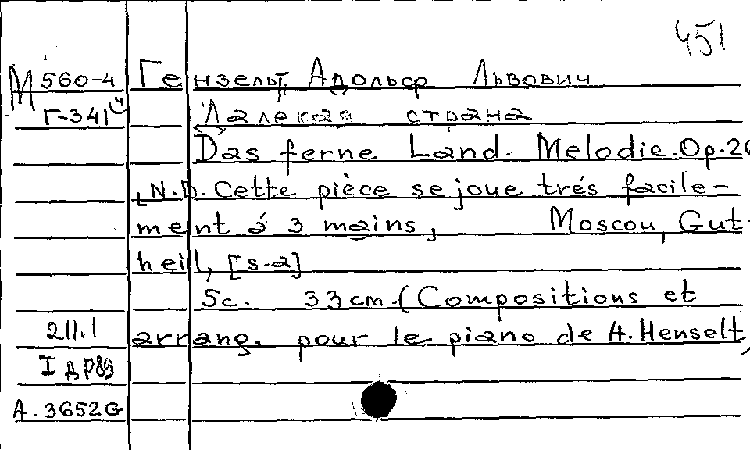 451
М 560-4 Гензельт, Адольф Львович
Г-341 Далекая страна
Das ferne Land. Melodie. Op. 20
[N.B. Cette pièce se joue trés facile-
ment á 3 mains, Moscou, Gut-
heil, [s-a]
5c. 33cm. (Compositions et
211.1 arrang. pour le piano de A. Henselt,
I др89
A. 3652G